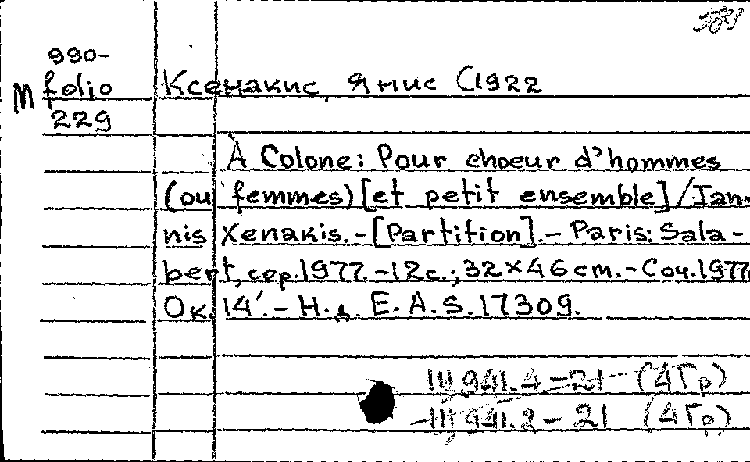 990-
М folio Ксенакис, Янис (1922
229
À Colone: Pour choeur d'hommes
(ou femmes) [et petit ensemble] / Jan-
nis Xenakis. - [Partition]. - Paris: Sala-
bert, cop. 1977. - 12 с.; 32×46 cm. - Соч. 1977
Ок. 14'. - Н. д. E. A. S. 17309.
941.4 - 21 (4Гр)
941.2 - 21 (4Гр)